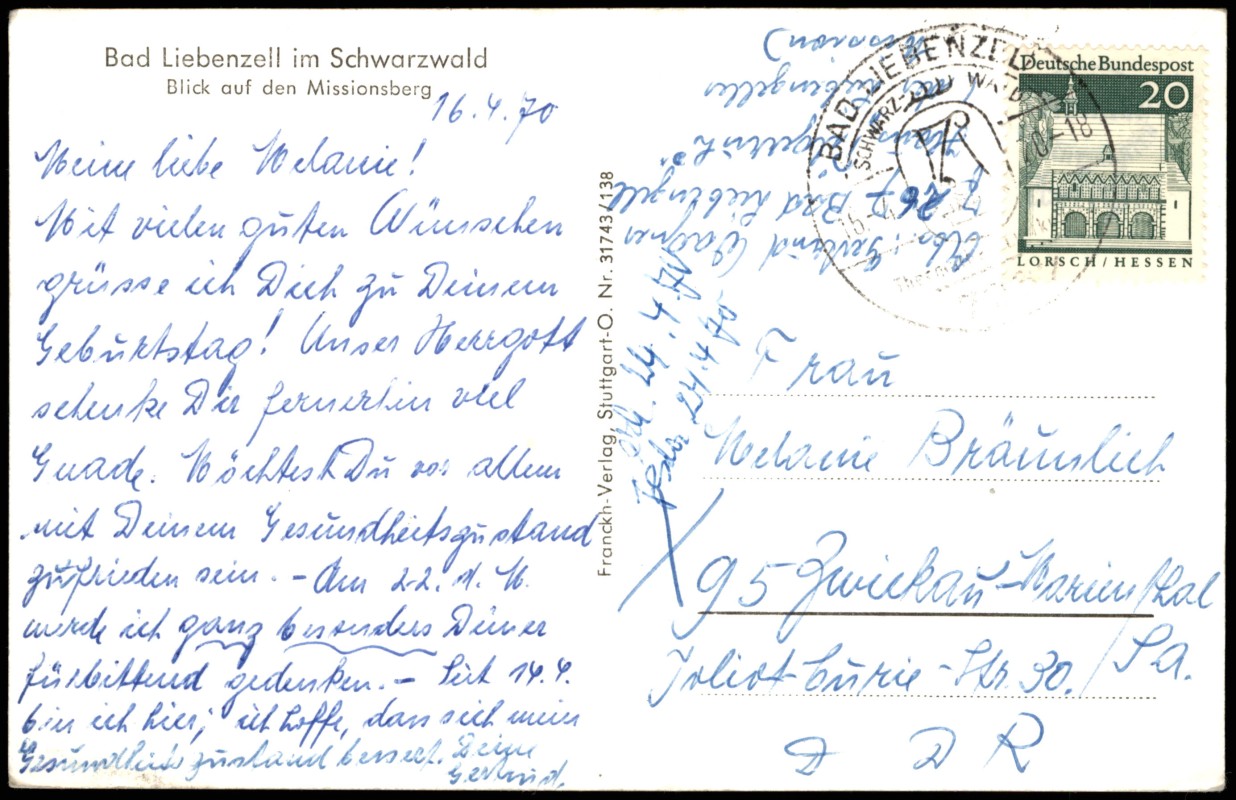 Bad Liebenzell im Schwarzwald
Blick auf den Missionsberg
16.4.70
Meine liebe Melanie!
Mit vielen guten Wünschen
grüsse ich Dich zu Deinem
Geburtstag! Unser Herrgott
schenke Dir fernerhin viel
Gnade. Möchtest Du vor allem
mit Deinem Gesundheitszustand
zufrieden sein. – Am 22. d. M.
werde ich ganz besonders Deiner
fürbittend gedenken. – Seit 14.4.
bin ich hier; ich hoffe, dass sich mein
Gesundheitszustand bessert. Deine
Gertrud.
Franckh-Verlag, Stuttgart-O. Nr. 31743/138
Abs.: Gertrud Wagner
7267 Bad Liebenzell
Haus
(Liebenzeller
Mission)
24.4.70
24.4.70
BAD LIEBENZELL
SCHWARZWALD
16.
-18
Deutsche Bundespost
20
LORSCH/HESSEN
Frau
Melanie Bräunlich
95 Zwickau-Marienthal
Joliot-Curie-Str. 30. /Sa.
D D R